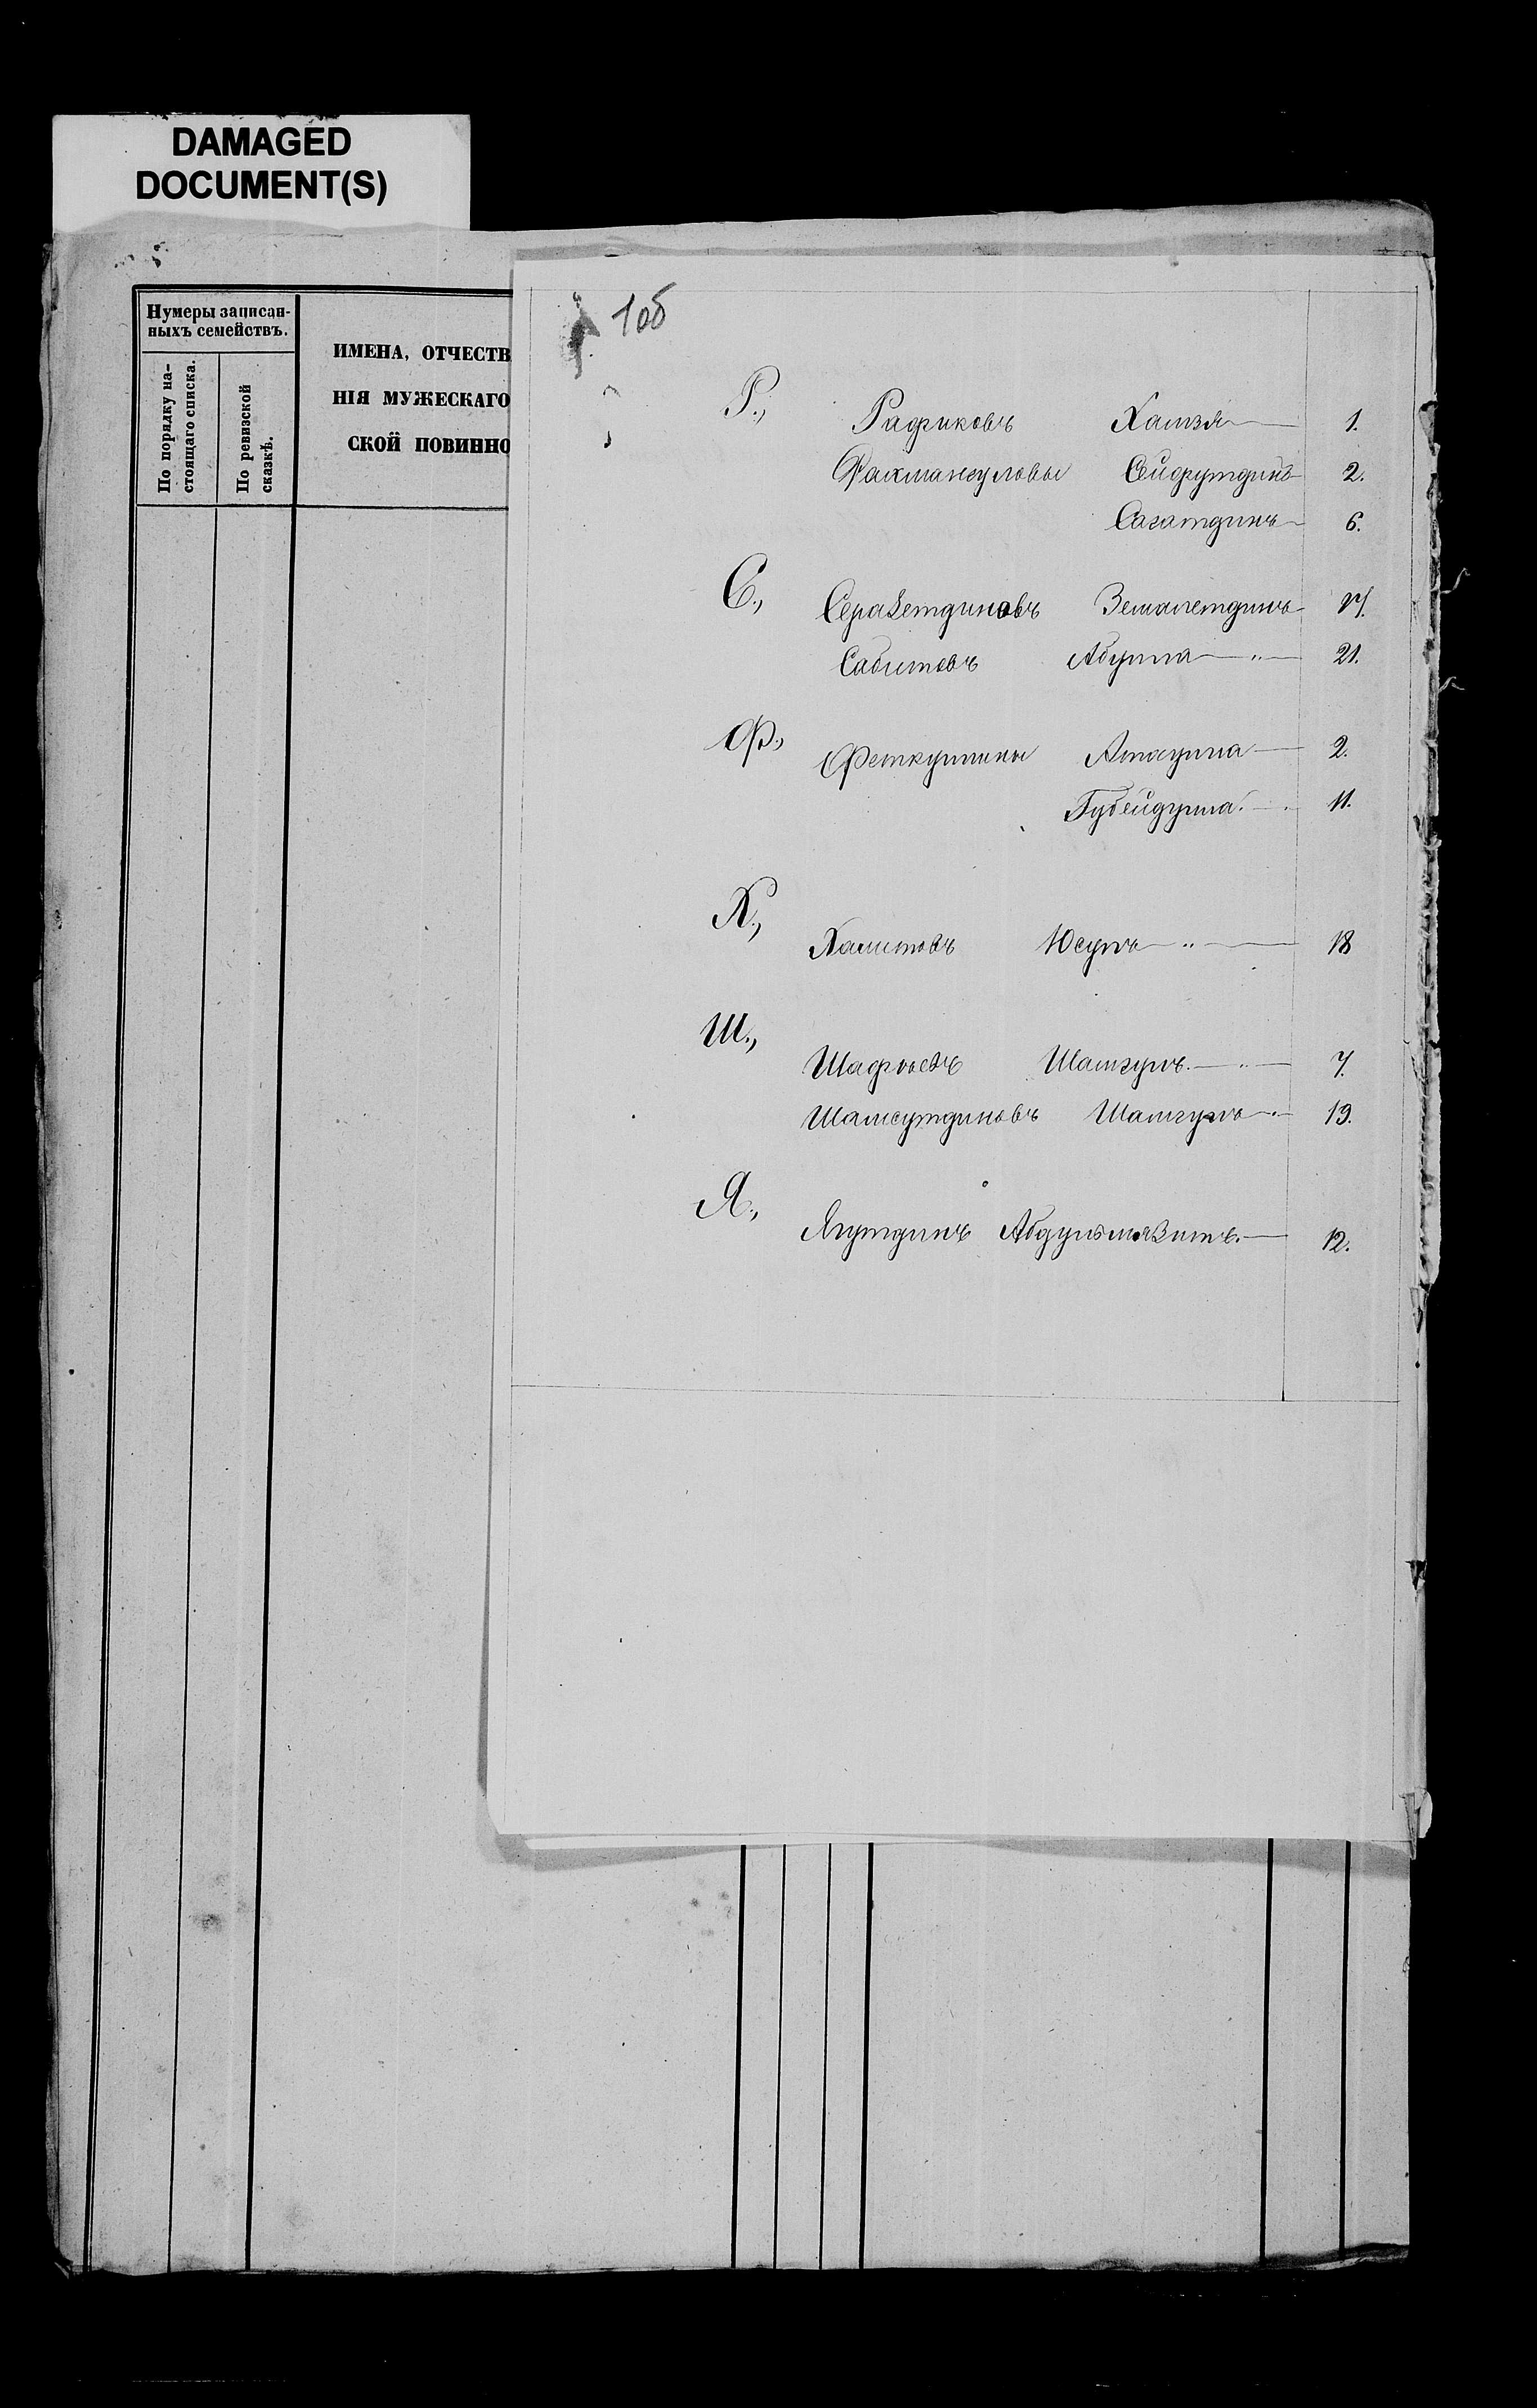 DAMAGED
DOCUMENT(S)
Нумеры записан-
ныхъ семействъ.
По порядку на-
стоящаго списка.
По ревизской
сказкѣ.
ИМЕНА, ОТЧЕСТВ
НІЯ МУЖЕСКАГО
СКОЙ ПОВИННО
10б
Р.,
Рафиковъ Хамзя 1.
Рахмангуловы Сейфутдинъ 2.
Сагатдинъ 6.
С.,
Серазетдиновъ Земалетдинъ 17.
Сабитовъ Абдулла 21.
Ф.,
Феткуллины Атаулла 2.
Губейдулла 11.
Х.,
Халитовъ Юсупъ 18
Ш.,
Шафѣевъ Шамгулъ 7.
Шамсутдиновъ Шамгулъ 19.
Я.,
Ягутдинъ Абдулъмазитъ. 12.